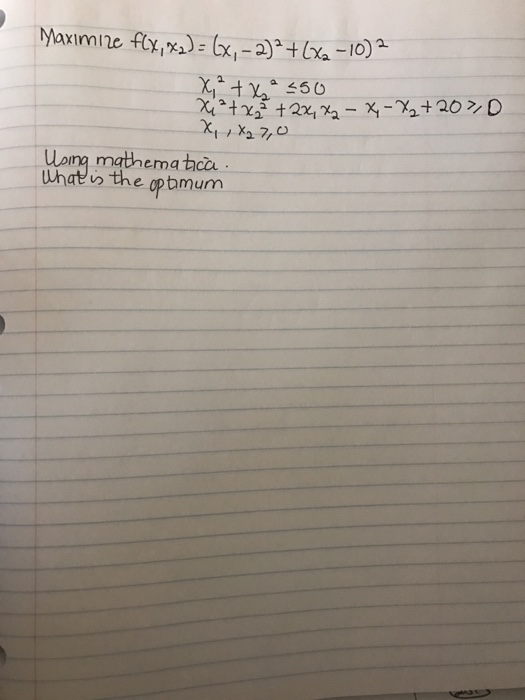 Maximize f(x₁x₂) = (x₁ - 2)² + (x₂ - 10)²
x₁² + x₂² ≤ 50
x₁² + x₂² + 2x₁x₂ - x₁ - x₂ + 20 ≥ 0
x₁, x₂ ≥ 0
Using mathematica.
What is the optimum